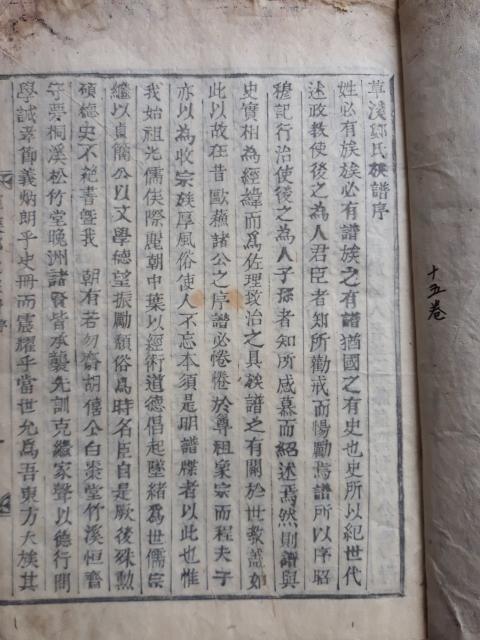 草溪鄭氏族譜序
姓必有族族必有譜族之有譜猶國之有史也史所以紀世代
述政教使後之為人君臣者知所勸戒而惕勵焉譜所以序昭
穆記行治使後之為人子孫者知所感慕而紹述焉然則譜與
史實相為經緯而爲佐理致治之具族譜之有關於世教蓋如
此以故在昔歐蘓諸公之序譜必惓惓於尊祖衆宗而程夫子
亦以為收宗族厚風俗使人不忘本須是明譜牒者以此也惟
我始祖光儒侯際麗朝中葉以經術道德倡起墜緒為世儒宗
繼以貞簡公以文學德望振勵頹俗爲時名臣自是厥後殊勳
碩德史不絶書曁我 朝有若勿齋胡僖公白泰堂竹溪恒齋
守夢桐溪松竹堂晩洲諸賢皆承襲先訓克繼家聲以德行聞
學誠孝節義炳朗乎史冊而震耀乎當世允爲吾東方大族其
十五卷